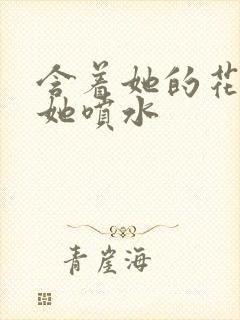 含着她的花
她喷水
青崖海